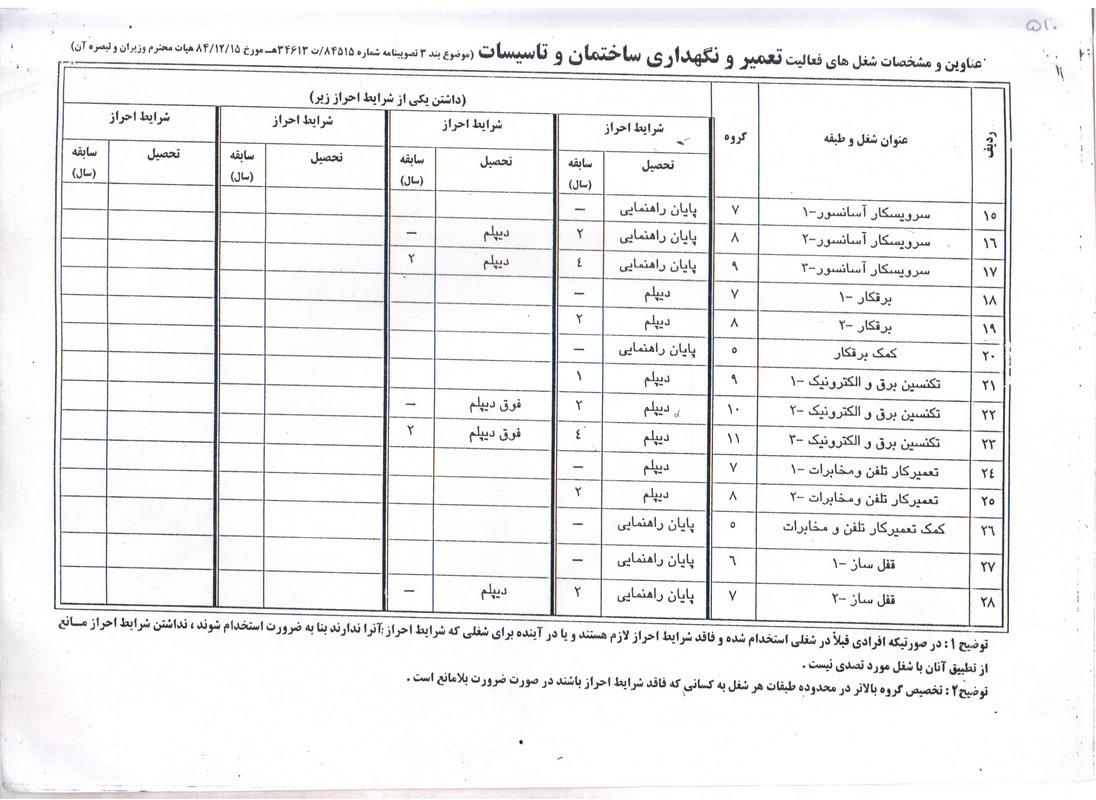 ۵۲۰
عناوین و مشخصات شغل های فعالیت تعمیر و نگهداری ساختمان و تاسیسات (موضوع بند ۳ تصویبنامه شماره ۸۴۵۱۵/ت ۳۴۶۱۳هـ مورخ ۸۴/۱۲/۱۵ هیات محترم وزیران و تبصره آن)
ردیف عنوان شغل و طبقه گروه (داشتن یکی از شرایط احراز زیر)
شرایط احراز شرایط احراز شرایط احراز شرایط احراز
تحصیل سابقه (سال) تحصیل سابقه (سال) تحصیل سابقه (سال) تحصیل سابقه (سال)
۱۵ سرویسکار آسانسور-۱ ۷ پایان راهنمایی —
۱۶ سرویسکار آسانسور-۲ ۸ پایان راهنمایی ۲ دیپلم —
۱۷ سرویسکار آسانسور-۳ ۹ پایان راهنمایی ٤ دیپلم ۲
۱۸ برقکار -۱ ۷ دیپلم —
۱۹ برقکار -۲ ۸ دیپلم ۲
۲۰ کمک برقکار ۵ پایان راهنمایی —
۲۱ تکنسین برق و الکترونیک -۱ ۹ دیپلم ۱
۲۲ تکنسین برق و الکترونیک -۲ ۱۰ دیپلم ۲ فوق دیپلم —
۲۳ تکنسین برق و الکترونیک -۳ ۱۱ دیپلم ٤ فوق دیپلم ۲
۲٤ تعمیرکار تلفن ومخابرات -۱ ۷ دیپلم —
۲۵ تعمیرکار تلفن ومخابرات -۲ ۸ دیپلم ۲
۲٦ کمک تعمیرکار تلفن و مخابرات ۵ پایان راهنمایی —
۲۷ قفل ساز -۱ ٦ پایان راهنمایی —
۲۸ قفل ساز -۲ ۷ پایان راهنمایی ۲ دیپلم —
توضیح ۱ : در صورتیکه افرادی قبلاً در شغلی استخدام شده و فاقد شرایط احراز لازم هستند و یا در آینده برای شغلی که شرایط احراز آنرا ندارند بنا به ضرورت استخدام شوند ، نداشتن شرایط احراز مـانع
از تطبیق آنان با شغل مورد تصدی نیست .
توضیح۲ : تخصیص گروه بالاتر در محدوده طبقات هر شغل به کسانی که فاقد شرایط احراز باشند در صورت ضرورت بلامانع است .